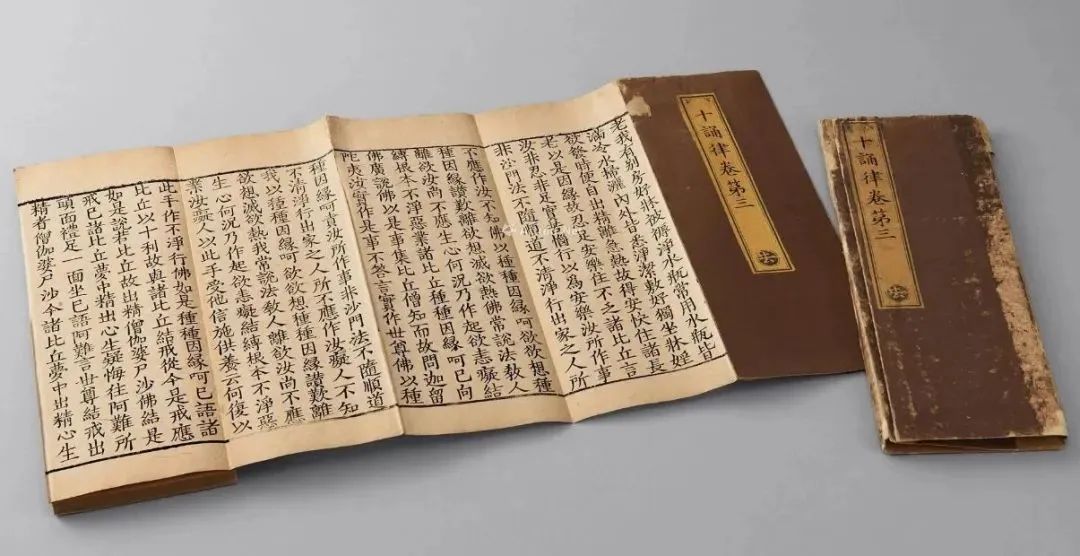 十誦律卷第三
十誦律卷第三
老我有別房好牀被褥淨水瓶常用水瓶皆
滿水掃灑內外皆悉淨潔好獨坐牀婬
欲發時便自出精離急熱故得安快住諸長
老以是因緣故忍足安樂住不乏諸比丘言
汝非忍非足實苦惱行以為安樂汝所作事
非沙門法不隨順道不清淨行出家之人所
不應作汝不知佛以種種因緣呵欲欲想種
種因緣讚歎離欲想滅欲熱佛常說法教人
離欲汝尚不應生心何況乃作起欲恚癡結
縛根本不淨惡業諸比丘種種因緣呵已向
佛廣說佛以是事集比丘僧知而故問迦留
陀夷汝實作是事不答言實作世尊佛以種
種因緣呵責汝所作事非沙門法不隨順道
不清淨行出家之人所不應作汝癡人不知
我以種種因緣呵欲欲想種種因緣讚歎離
欲想滅欲熱我常說法教人離欲汝尚不應
生心何況乃作起欲恚癡結縛根本不淨惡
業汝癡人以此手受他信施供養云何復以
此手作不淨行佛如是種種因緣呵已語諸
比丘以十利故與諸比丘結戒從今是戒應
如是說若比丘故出精僧伽婆尸沙佛結是
戒已諸比丘夢中精出心生疑悔往阿難所
頭面禮足一面坐已語阿難言世尊結戒出
精者僧伽婆尸沙今諸比丘夢中出精心生